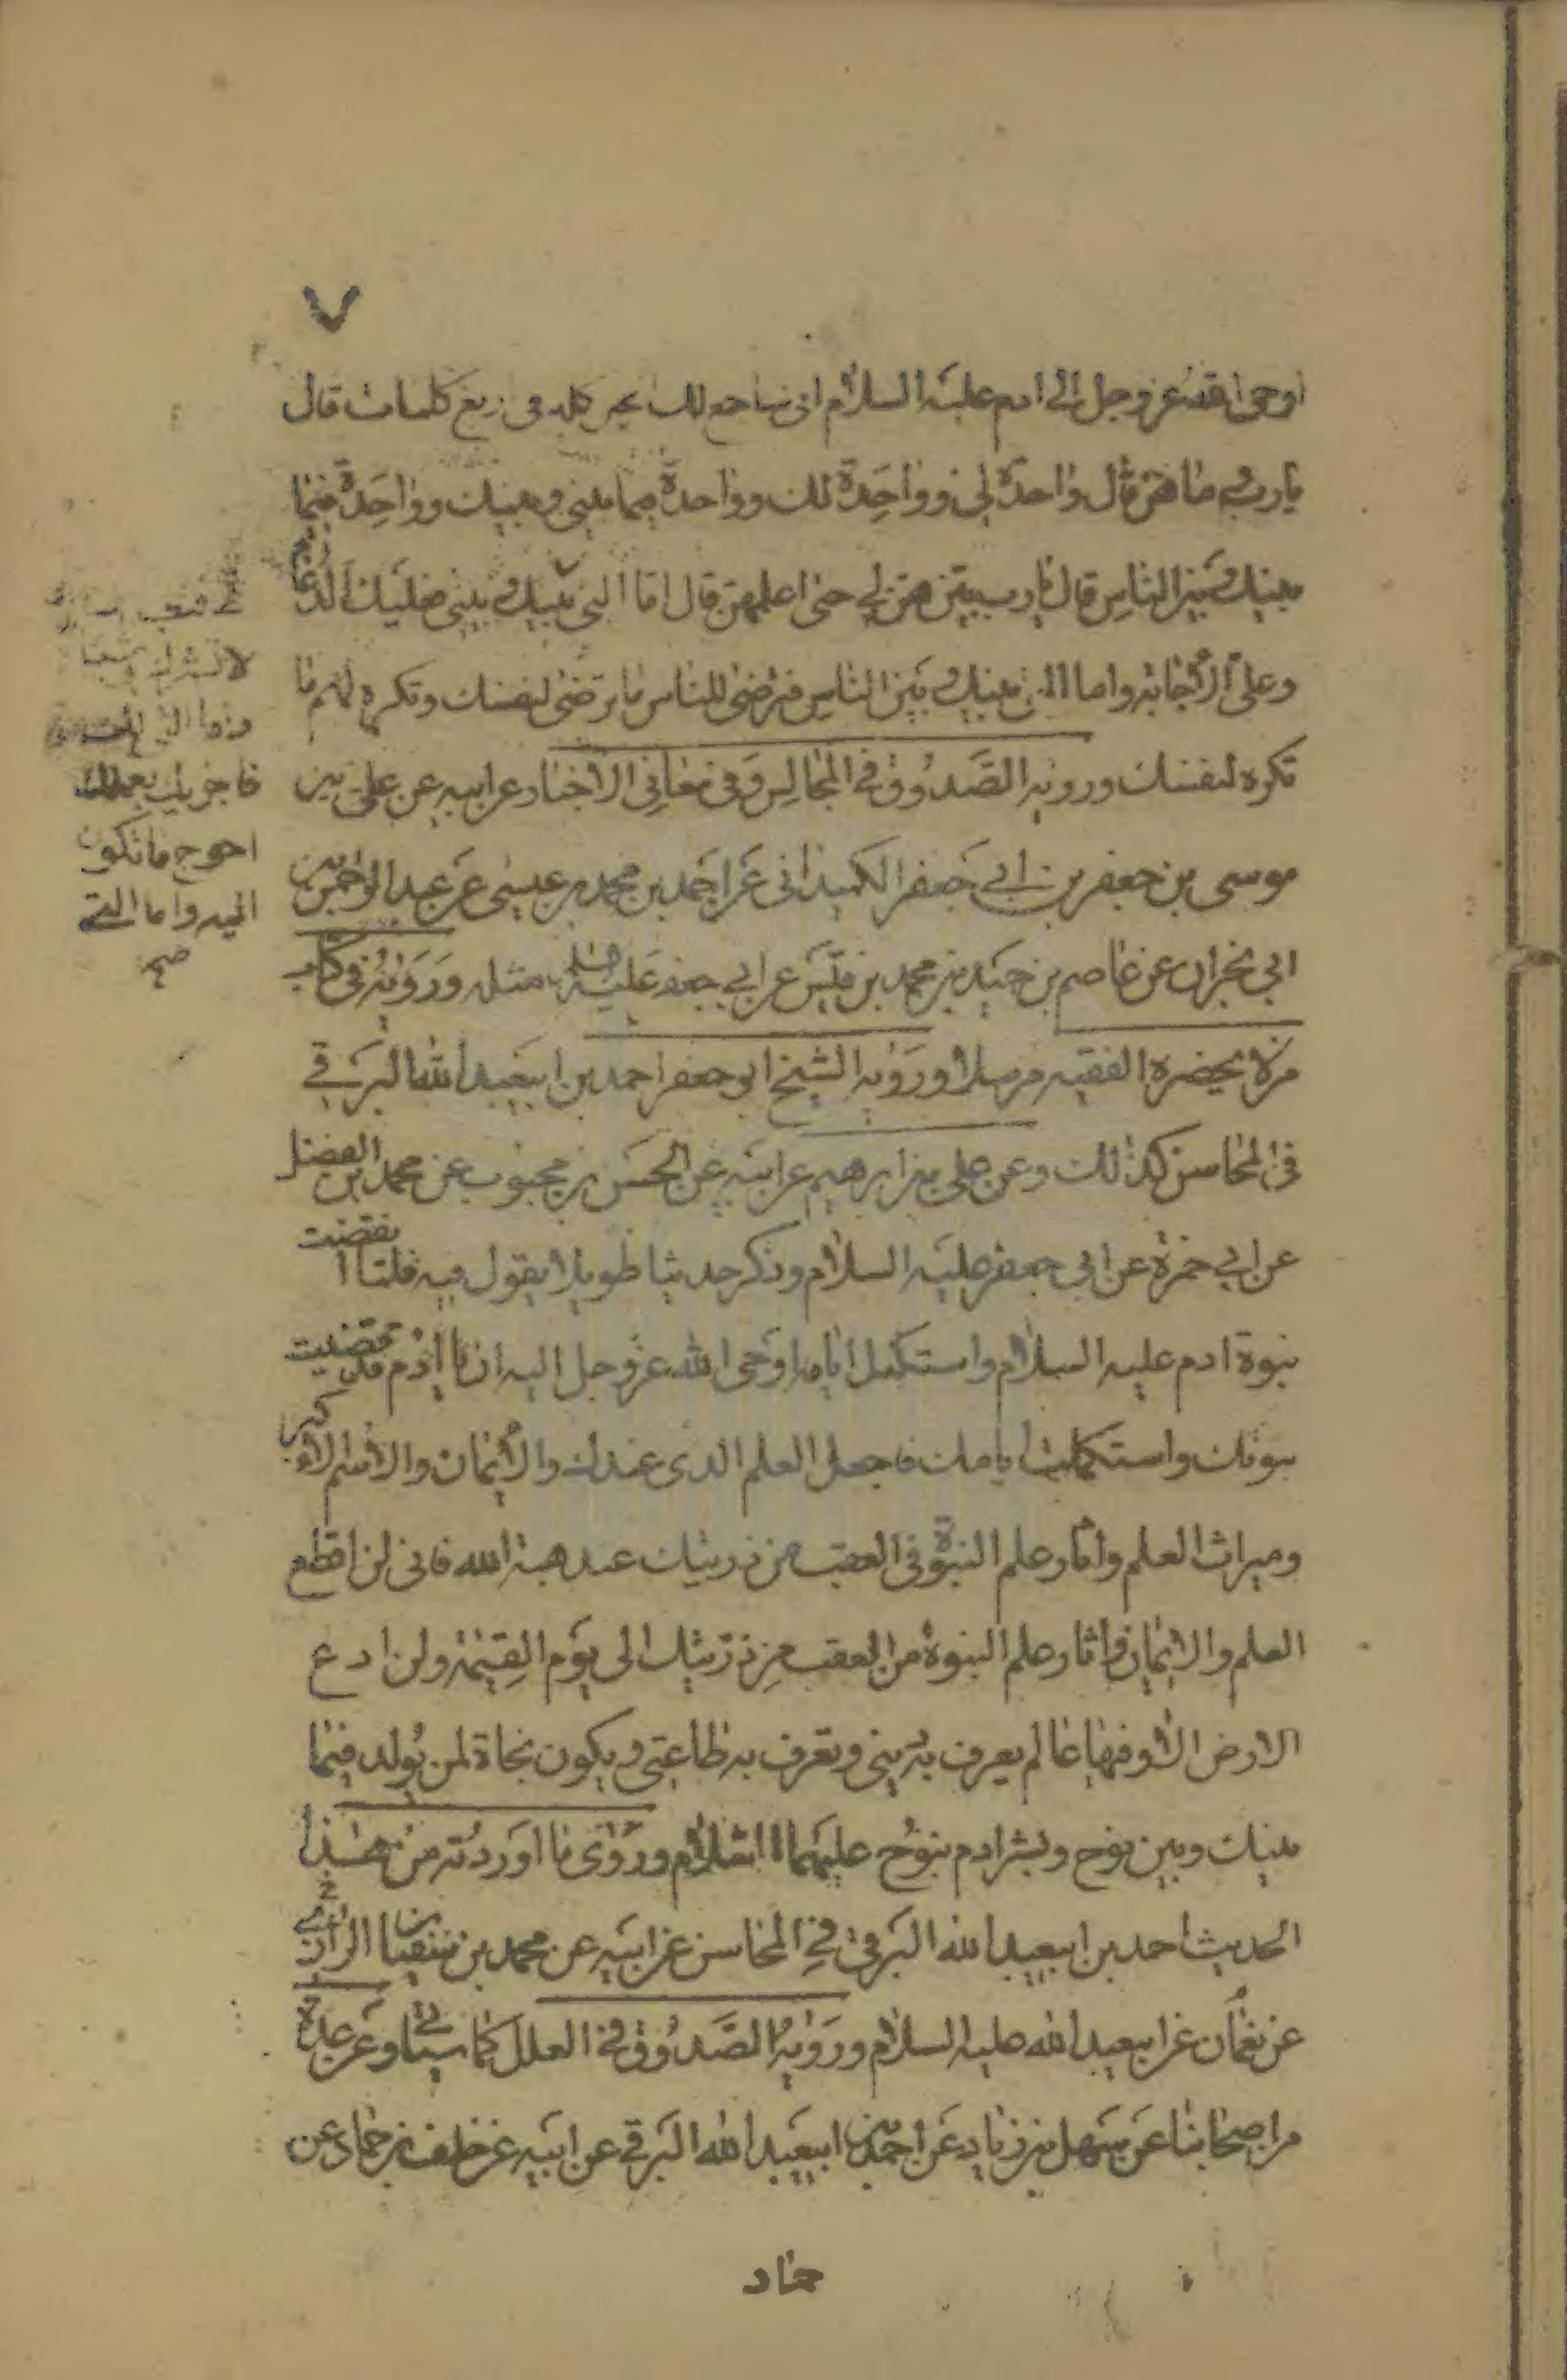 ٧
اوحى الله عز وجل الى ادم عليه السلام انى ساجمع لك الخير كله فى اربع كلمات قال
يا رب وما هن قال واحدة لى وواحدة لك وواحدة فيما بينى وبينك وواحدة فيما
بينك وبين الناس قال يا رب بينهن لى حتى اعلمهن قال اما التى بينك وبينى فعليك الدعا
وعلى الاجابة واما التى بينك وبين الناس فترضى للناس ما ترضى لنفسك وتكره لهم ما
تكره لنفسك ورويه الصدوق فى المجالس وفى معانى الاخبار عن ابيه عن على بن
موسى بن جعفر بن ابى جعفر الكميدانى عن احمد بن محمد بن عيسى عن عبد الرحمن بن
ابى نجران عن عاصم بن حميد بن محمد بن قيس عن ابى جعفر عليه مثله ورويه فى كتاب
من لا يحضره الفقيه مرسلا ورويه الشيخ ابو جعفر احمد بن ابيعبد الله البرقى
فى المحاسن كذلك وعن على بن ابرهيم عن ابيه عن الحسن بن محبوب عن محمد بن الفضل
عن ابى حمزة عن ابى جعفر عليه السلام وذكر حديثا طويلا يقول فيه فلما انقضت
نبوة ادم عليه السلام واستكمل ايامه اوحى الله عز وجل اليه ان يا ادم قد قضيت
نبوتك واستكملت ايامك فاجعل العلم الذى عندك والايمان والاسم الاكبر
وميراث العلم واثار علم النبوة فى العقب من ذريتك عند هبة الله فانى لن اقطع
العلم والايمان واثار علم النبوة من العقب من ذريتك الى يوم القيمة ولن ادع
الارض الا وفيها عالم يعرف به دينى وتعرف به طاعتى ويكون نجاة لمن يولد فيما
بينك وبين نوح وبشر ادم بنوح عليهما السلام وروى ما اوردته من هذا
الحديث احمد بن ابيعبد الله البرقى فى المحاسن عن ابيه عن محمد بن سفيان
عن نعمان عن ابيعبد الله عليه السلام ورويه الصدوق فى العلل كما سياتى وعن عدة
من اصحابنا عن سهل بن زياد عن احمد بن ابيعبد الله البرقى عن ابيه عن خلف بن حماد عن
حماد
لا تشرك بى شيئا
واما التى لك
فاجزيك بعملك
احوج ما تكون
اليه واما التى
صح